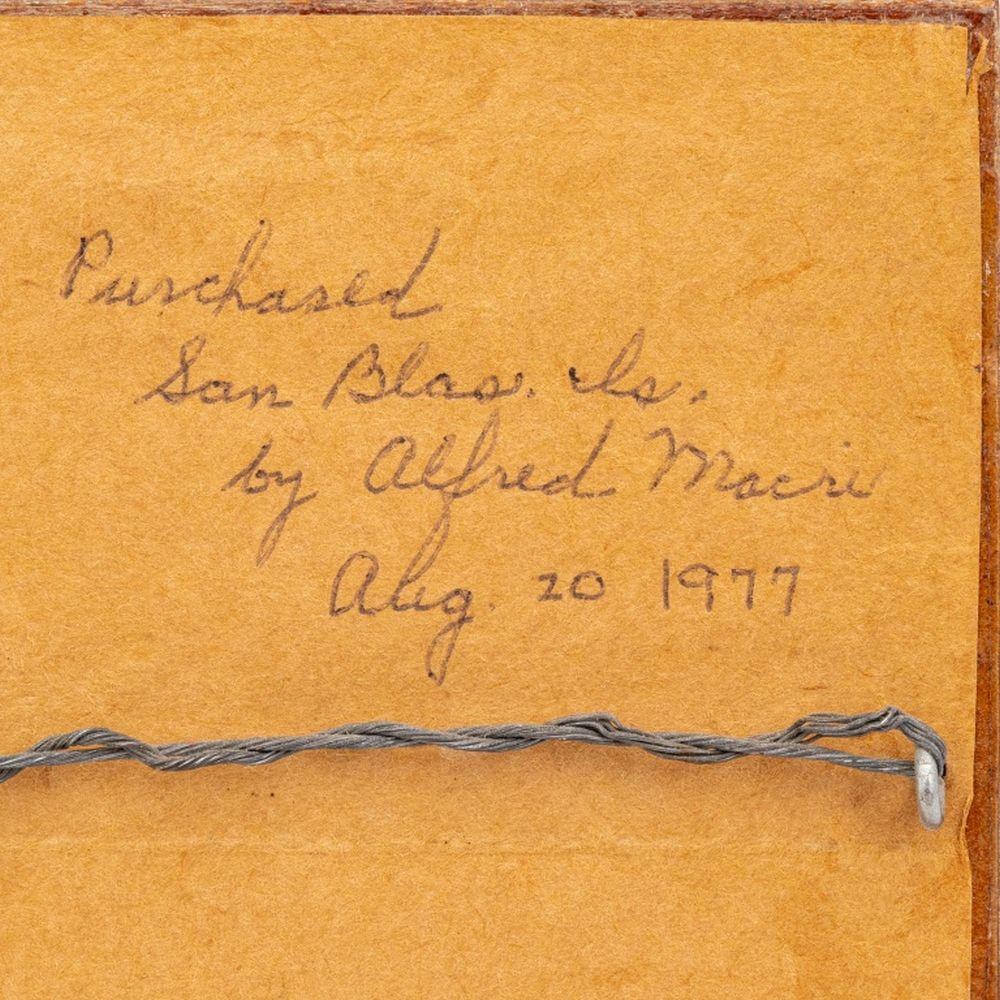 Purchased
San Blas. Is.
by Alfred Macri
Aug. 20 1977